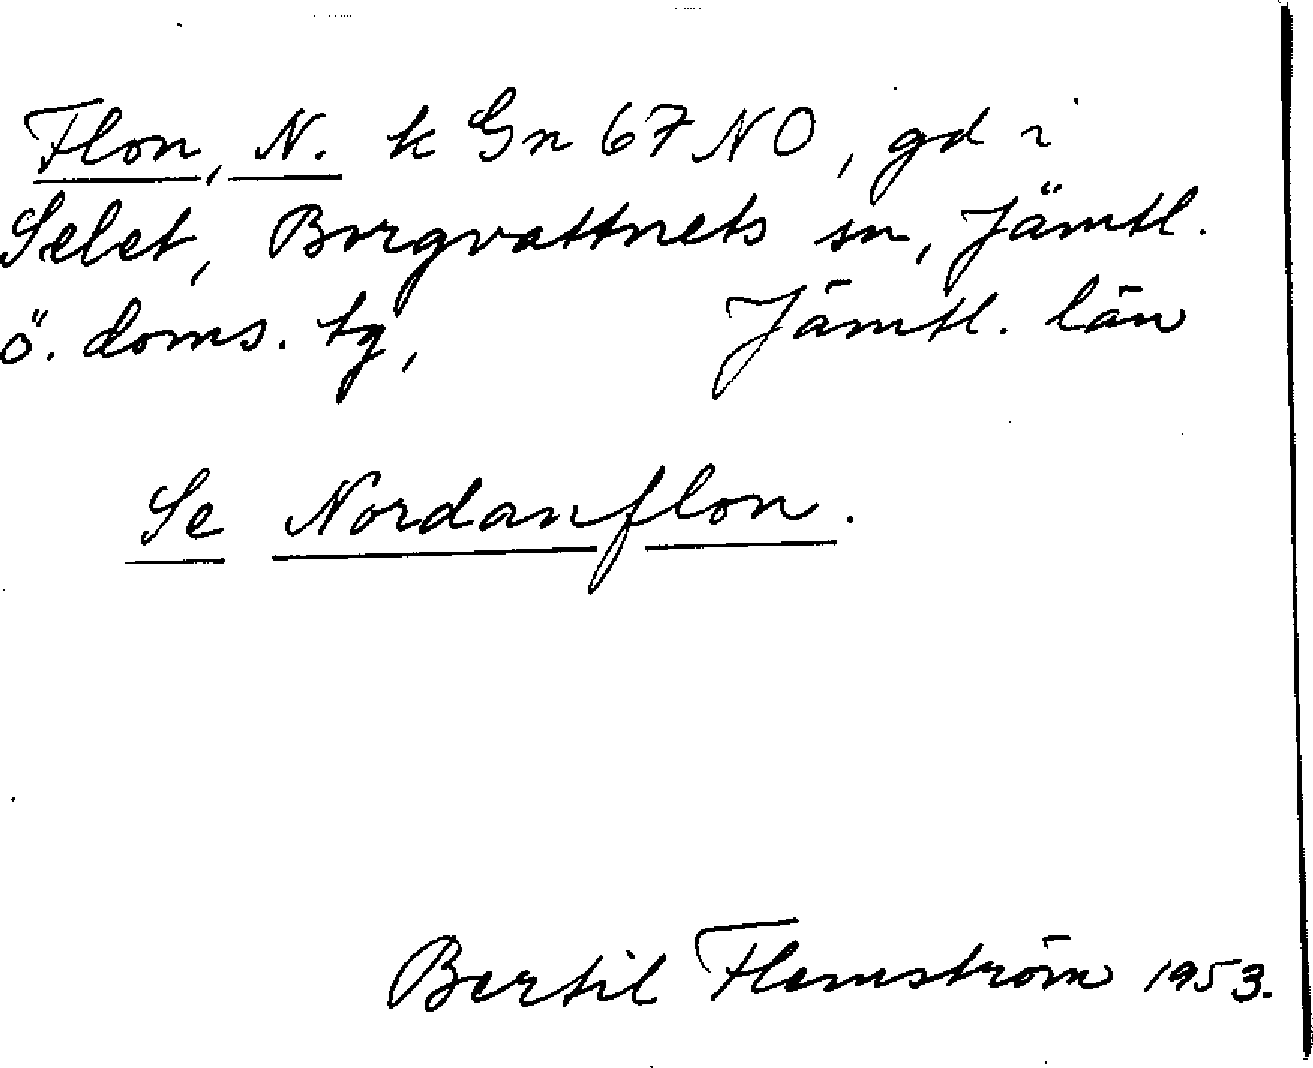 Flon, N. k Gn 67 NO, gd i
Selet, Borgvattnets sn, Jämtl.
ö. doms. tg, Jämtl. län
Se Nordanflon.
Bertil Flemström 1953.